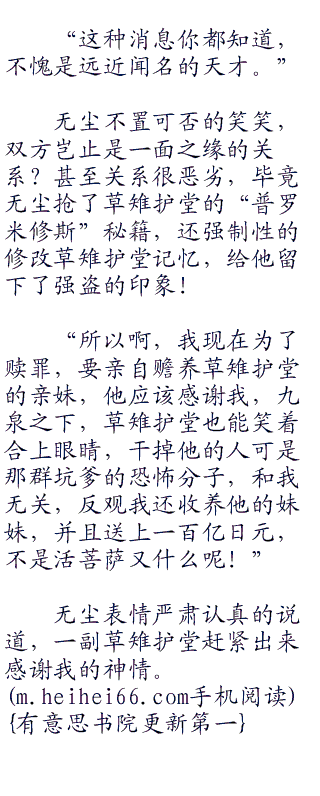 “这种消息你都知道，
不愧是远近闻名的天才。”
无尘不置可否的笑笑，
双方岂止是一面之缘的关
系？甚至关系很恶劣，毕竟
无尘抢了草雉护堂的“普罗
米修斯”秘籍，还强制性的
修改草雉护堂记忆，给他留
下了强盗的印象！
“所以啊，我现在为了
赎罪，要亲自赡养草雉护堂
的亲妹，他应该感谢我，九
泉之下，草雉护堂也能笑着
合上眼睛，干掉他的人可是
那群坑爹的恐怖分子，和我
无关，反观我还收养他的妹
妹，并且送上一百亿日元，
不是活菩萨又什么呢！”
无尘表情严肃认真的说
道，一副草雉护堂赶紧出来
感谢我的神情。
(m.heihei66.com手机阅读)
{有意思书院更新第一}